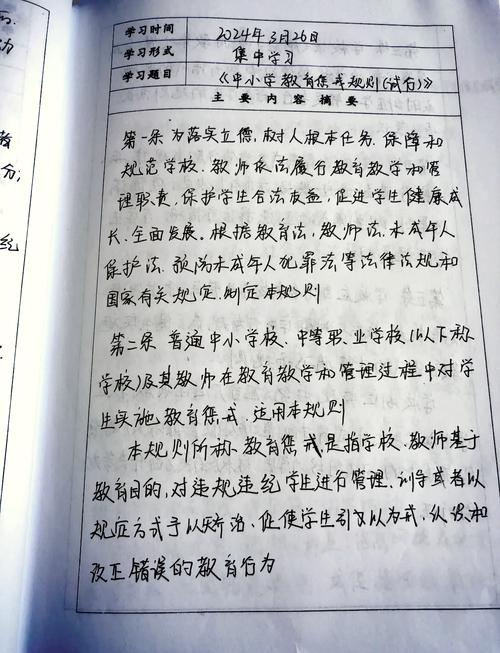 学习时间 2024年3月26日
学习形式 集中学习
学习题目 《中小学教育惩戒规则(试行)》
主要内容摘要
第一条 为落实立德,树人根本任务.保障和
规范学校、教师依法履行教育教学和管
理职责,保护学生合法权益,促进学生健康成
长、全面发展.根据教育法,教师法.未成年人
保护法、预防未成年人犯罪法等法律法规和
国家有关规定.制定本规则
第二条 普通中小学校、中等职业学校(以下称
学校)及其教师在教育教学和管理过程中对学
生实施教育惩戒.适用本规则
本规则所称教育惩戒是指学校、教师基于
教育目的,对违规违纪学生进行管理、训导或者以
规定方式予以矫治、促使学生引以为戒、认识和
改正错误的教育行为